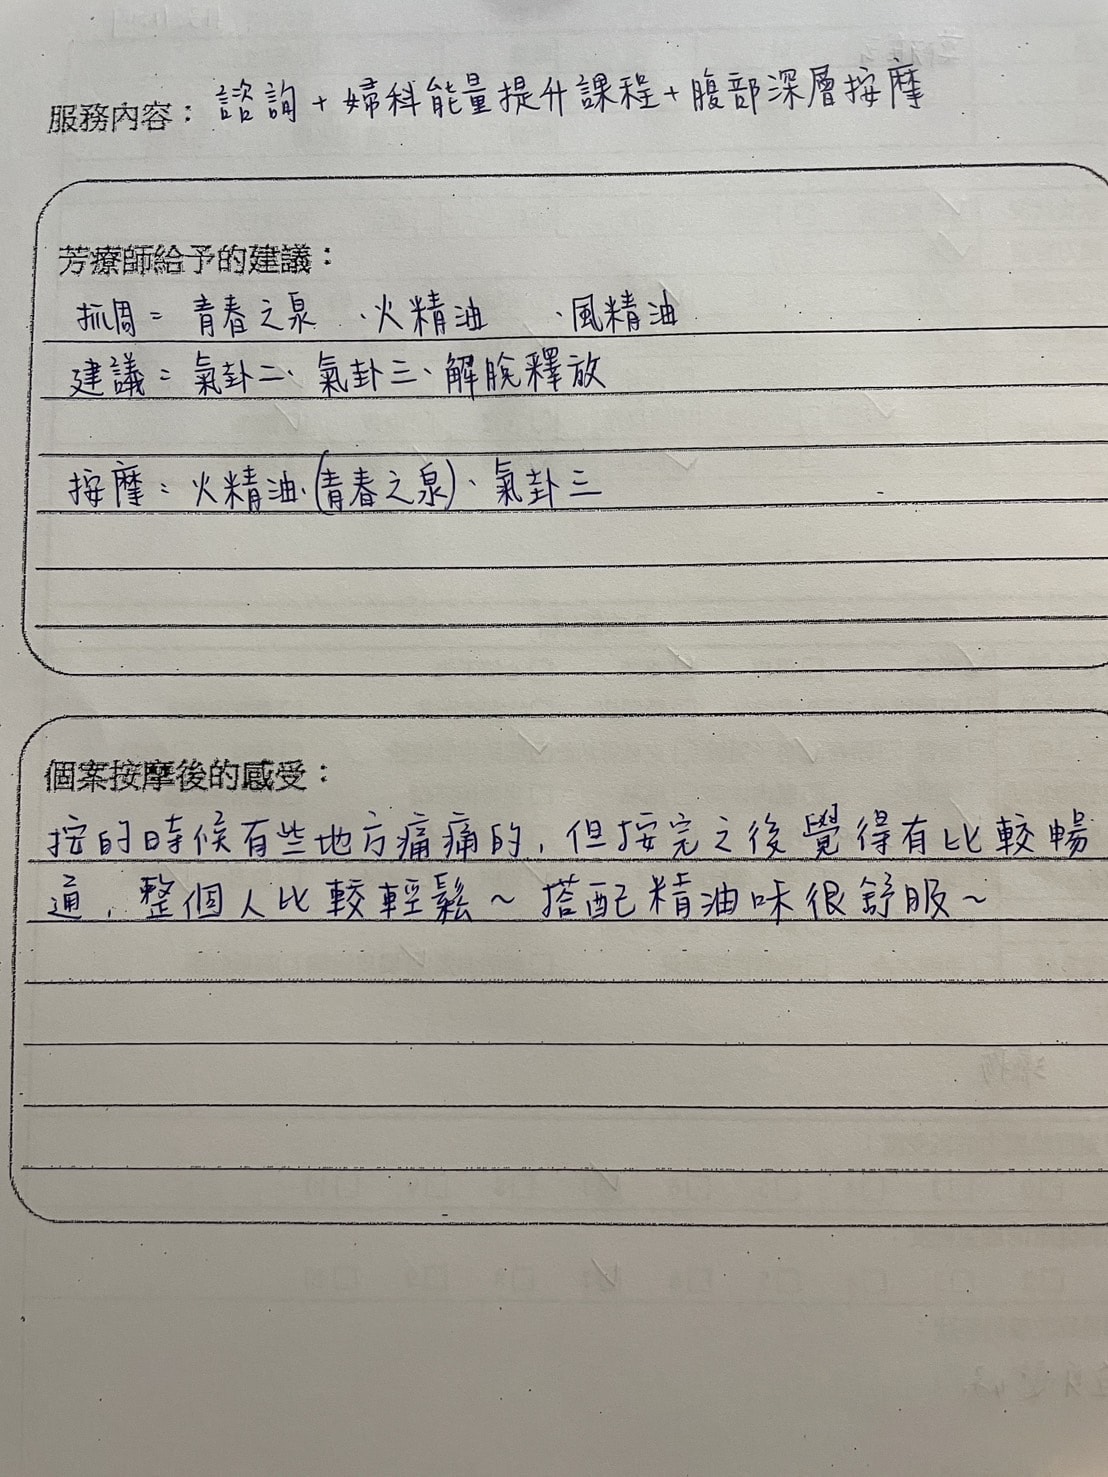 服務內容：諮詢+婦科能量提升課程+腹部深層按摩
芳療師給予的建議：
抓周=青春之泉、火精油、風精油
建議=氣卦二、氣卦三、解脫釋放
按摩：火精油、(青春之泉)、氣卦三
個案按摩後的感受：
按的時候有些地方痛痛的，但按完之後覺得有比較暢
通，整個人比較輕鬆~搭配精油味很舒服~